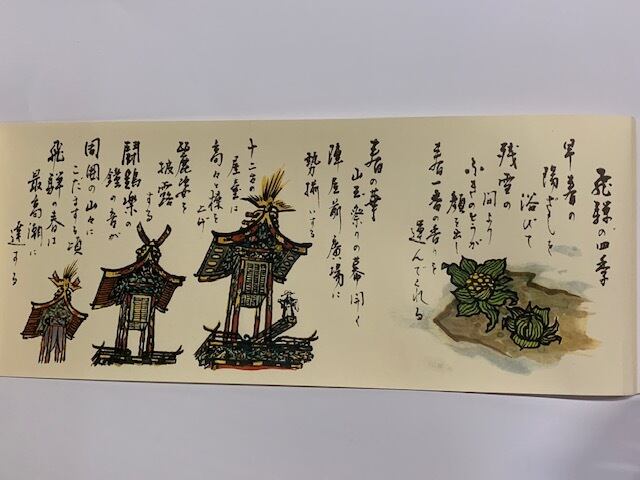 飛騨の四季
早春の
陽ざしを
浴びて
残雪の
間より
ふきのとうが
顔を出し
春一番の香りを
運んでくれる
春の華
山王祭りの幕開く
陣屋前廣場に
勢揃いする
十二台の
屋臺は
高々と棟を
上げ
華麗な姿を
披露
する
闘鶏樂の
鐘の音が
周囲の山々に
こだまする頃
飛騨の春は
最高潮に
達する